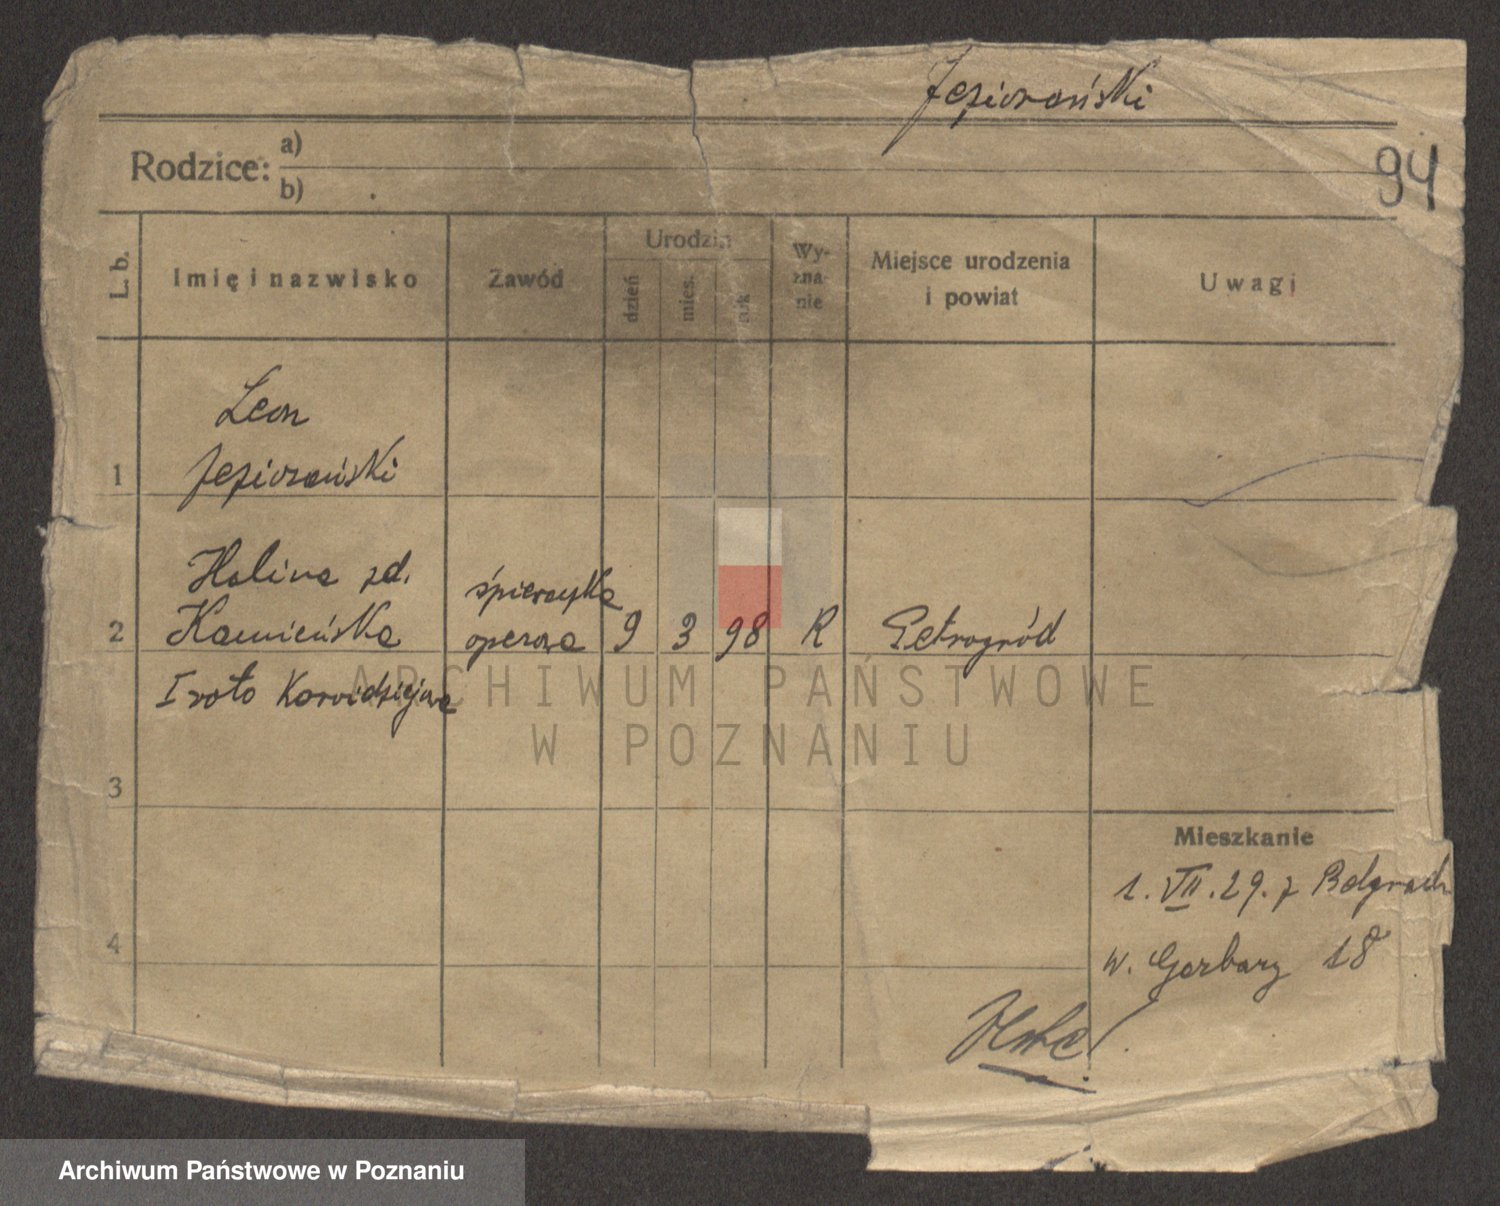 Jeziorański
94
Rodzice: a)
b)
L. b.
Imię i nazwisko
Zawód
Urodzin
dzień
mies.
rok
Wy-
zna-
nie
Miejsce urodzenia
i powiat
Uwagi
1
Leon
Jeziorański
2
Halina zd.
Kamieńska
I voto
śpiewaczka
operowa
9
3
98
R
Petrogród
3
4
Mieszkanie
1. VII. 29. z Belgradu
w. Garbary 18
ARCHIWUM PAŃSTWOWE
W POZNANIU
Archiwum Państwowe w Poznaniu